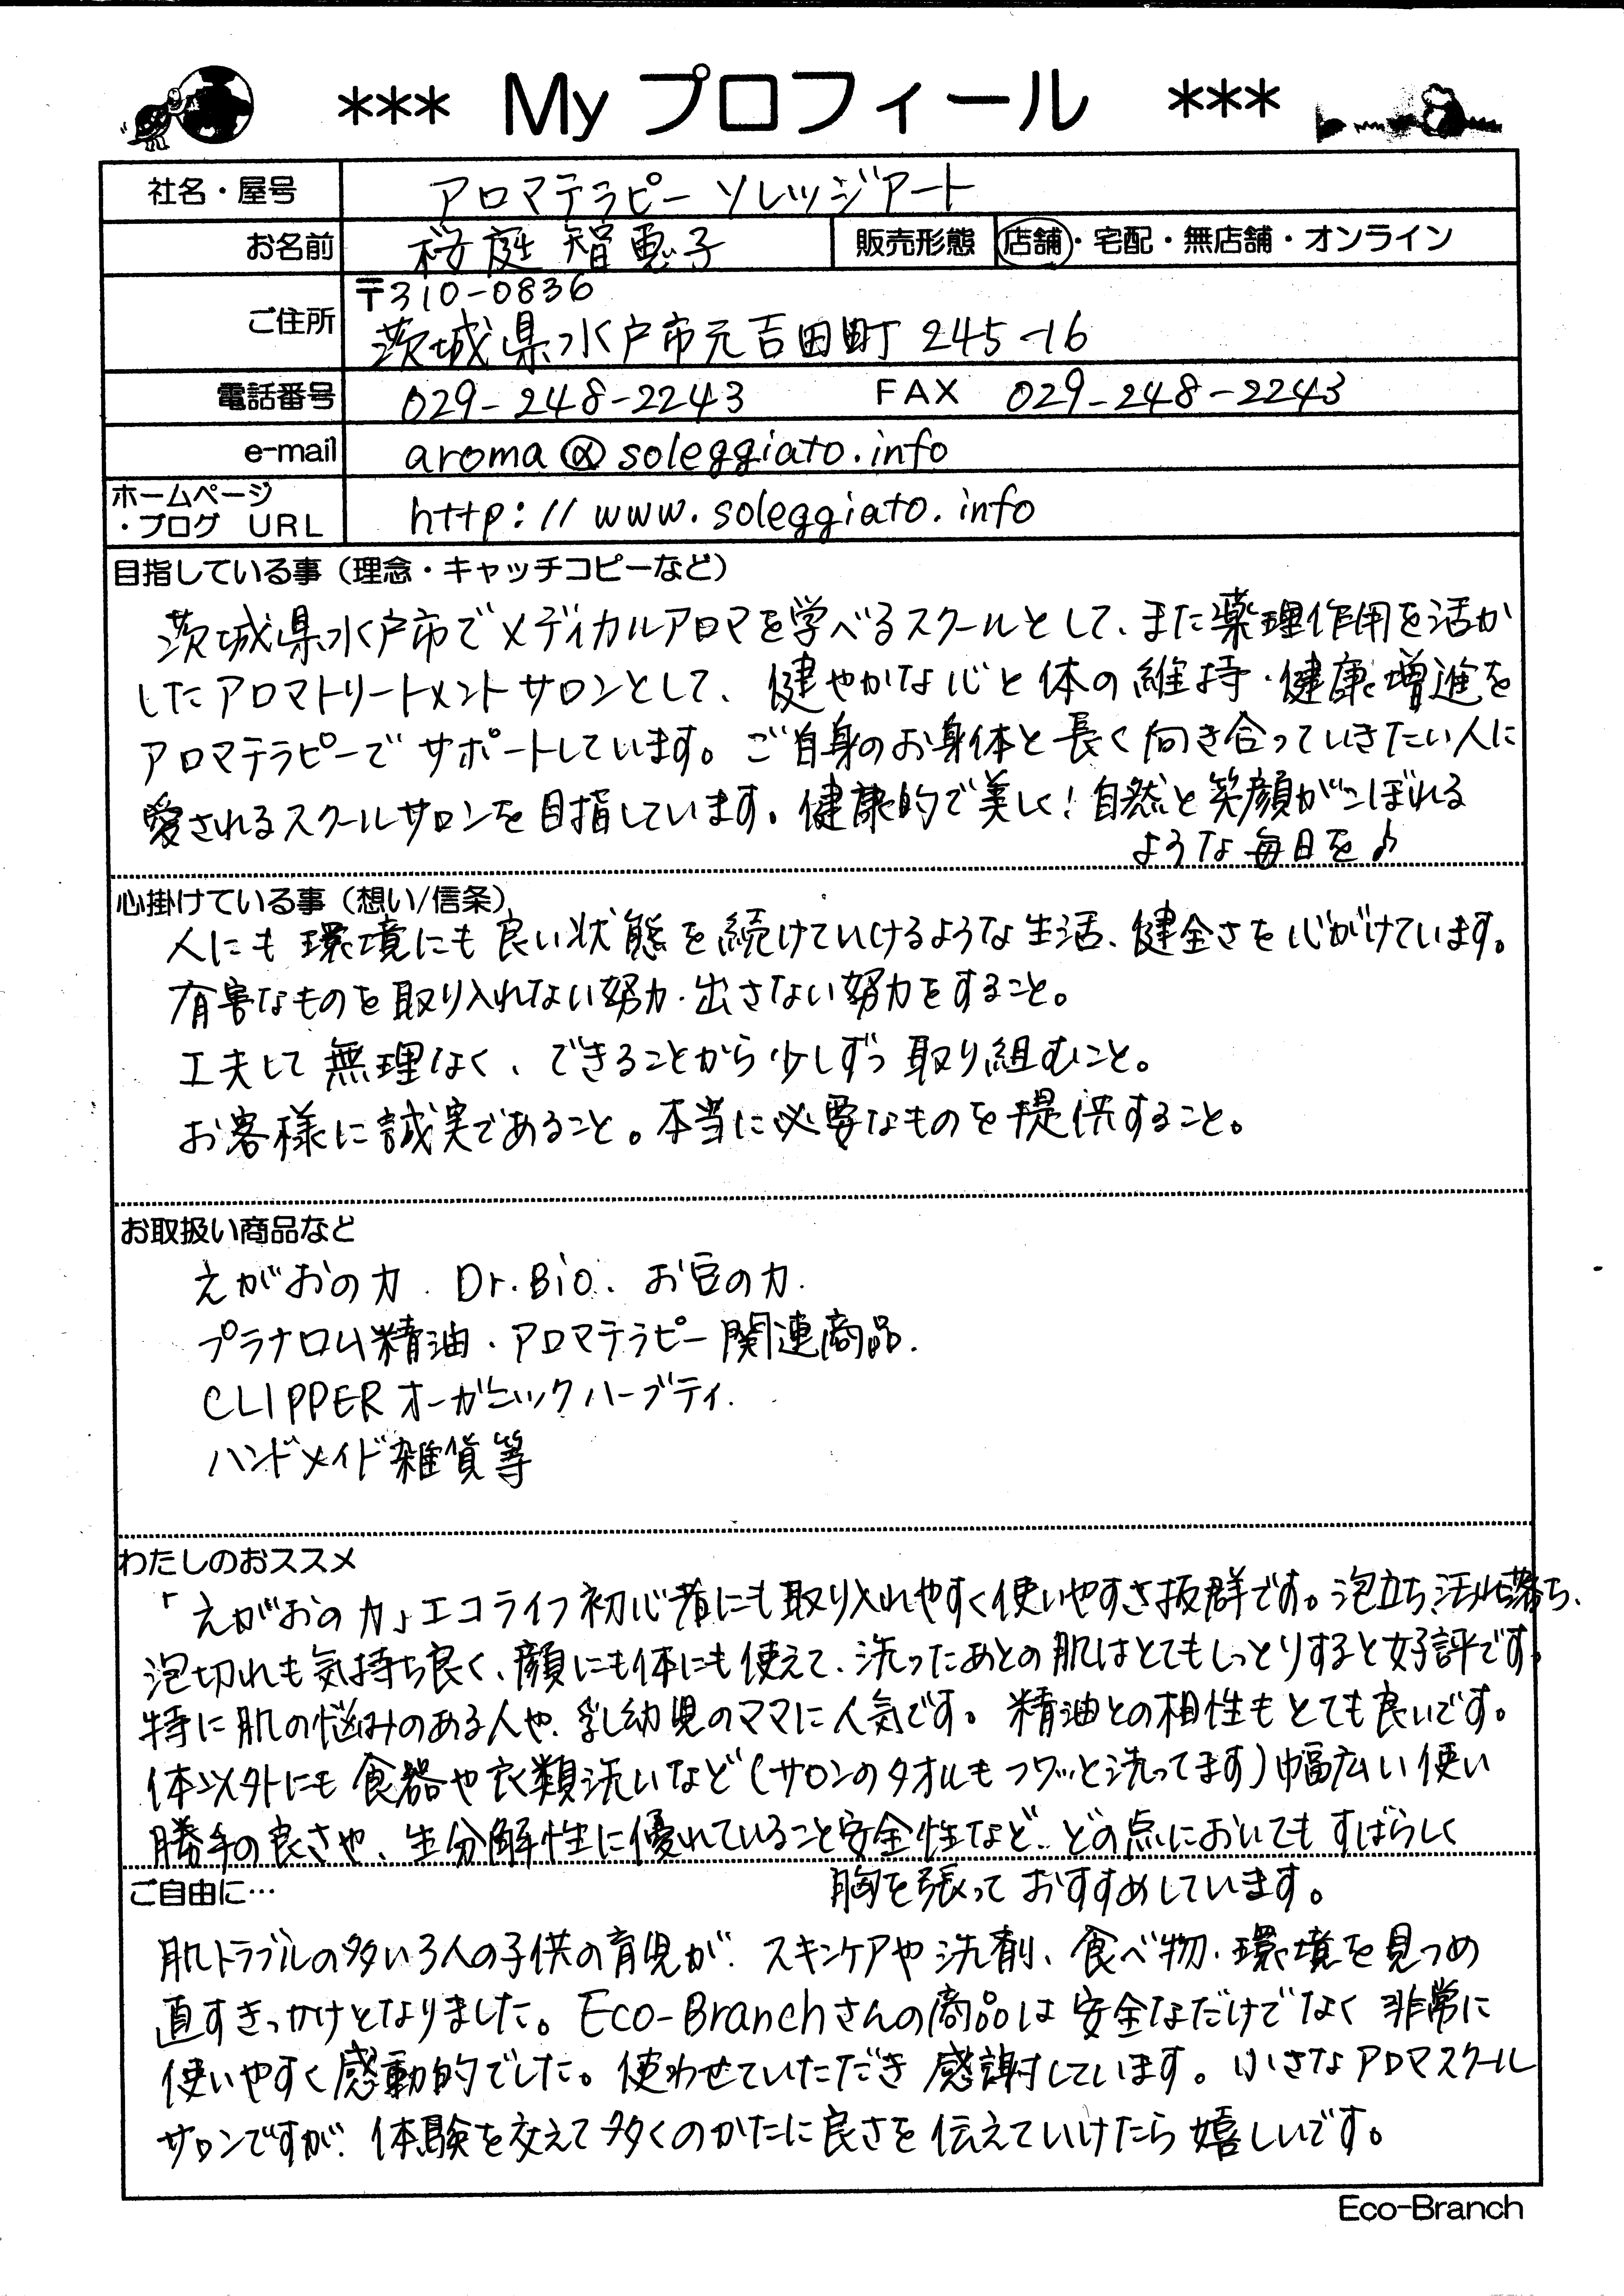 *** My プロフィール ***
社名・屋号 アロマテラピー ソレッジアート
お名前 桜庭 智恵子 販売形態 店舗・宅配・無店舗・オンライン
ご住所 〒310-0836
茨城県水戸市元吉田町 245-16
電話番号 029-248-2243 FAX 029-248-2243
e-mail aroma@soleggiato.info
ホームページ
・ブログ URL http://www.soleggiato.info
目指している事(理念・キャッチコピーなど)
茨城県水戸市でメディカルアロマを学べるスクールとして、また薬理作用を活か
したアロマトリートメントサロンとして、健やかな心と体の維持・健康増進を
アロマテラピーでサポートしています。ご自身のお身体と長く向き合っていきたい人に
愛されるスクールサロンを目指しています。健康的で美しく!自然と笑顔がこぼれる
ような毎日を♪
心掛けている事(想い/信条)
人にも環境にも良い状態を続けていけるような生活、健全さを心がけています。
有害なものを取り入れない努力・出さない努力をすること。
工夫して無理なく、できることから少しずつ取り組むこと。
お客様に誠実であること。本当に必要なものを提供すること。
お取扱い商品など
えがおの力. Dr.Bio. お豆の力.
プラナロム精油・アロマテラピー関連商品.
CLIPPER オーガニックハーブティ.
ハンドメイド雑貨等
わたしのおススメ
「えがおの力」エコライフ初心者にも取り入れやすく使いやすさ抜群です。泡立ち、汚れ落ち、
泡切れも気持ち良く、顔にも体にも使えて、洗ったあとの肌はとてもしっとりすると好評です。
特に肌の悩みのある人や、乳幼児のママに人気です。精油との相性もとても良いです。
体以外にも食器や衣類洗いなど(サロンのタオルもフワッと洗ってます)幅広い使い
勝手の良さや、生分解性に優れていること安全性など、どの点においてもすばらしく
胸を張っておすすめしています。
ご自由に…
肌トラブルの多い3人の子供の育児が、スキンケアや洗剤、食べ物・環境を見つめ
直すきっかけとなりました。Eco-Branchさんの商品は安全なだけでなく非常に
使いやすく感動的でした。使わせていただき感謝しています。小さなアロマスクール
サロンですが、体験を交えて多くのかたに良さを伝えていけたら嬉しいです。
Eco-Branch